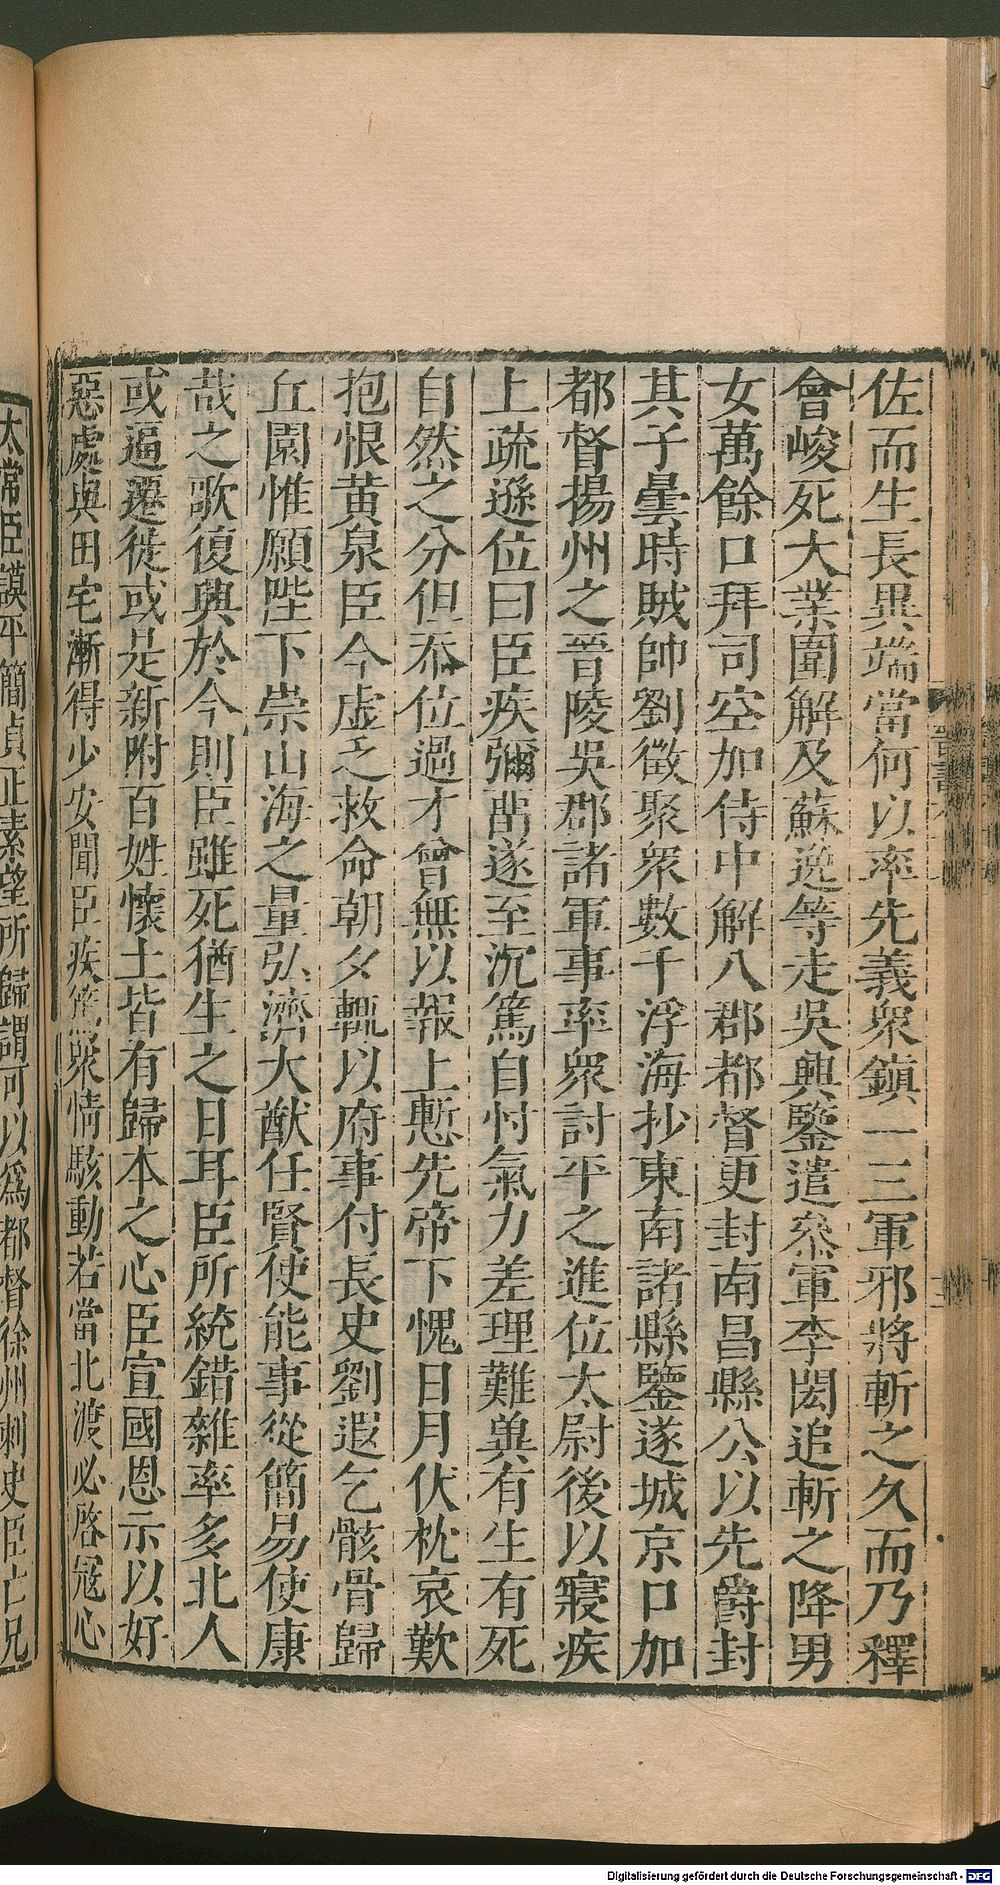 佐而生長異端當何以率先義衆鎮一三軍邪將斬之久而乃釋
會峻死大業圍解及蘇逸等走吳興鑒遣叅軍李閎追斬之降男
女萬餘口拜司空加侍中解八郡都督更封南昌縣公以先爵封
其子曇時賊帥劉徵聚衆數千浮海抄東南諸縣鑒遂城京口加
都督揚州之晉陵吳郡諸軍事率衆討平之進位太尉後以寢疾
上疏遜位曰臣疾彌畱遂至沉篤自忖氣力差理難兾有生有死
自然之分但忝位過才曾無以報上慙先帝下愧日月伏枕哀歎
抱恨黃泉臣今虛乏救命朝夕輒以府事付長史劉遐乞骸骨歸
丘園惟願陛下崇山海之量弘濟大猷任賢使能事從簡易使康
哉之歌復興於今則臣雖死猶生之日耳臣所統錯雜率多北人
或逼遷徙或是新附百姓懷土皆有歸本之心臣宣國恩示以好
惡處與田宅漸得少安聞臣疾篤衆情駭動若當北渡必啓寇心
太常臣謨平簡貞正素望所歸謂可以爲都督徐州刺史臣亡兄
Digitalisierung gefördert durch die Deutsche Forschungsgemeinschaft - DFG